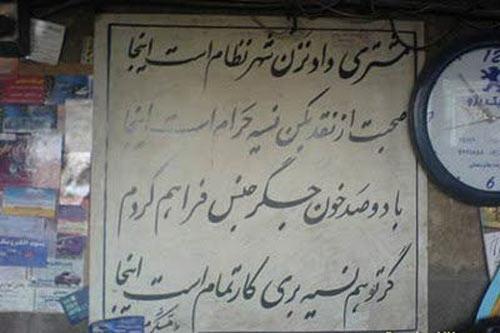 مشتری داد نزن شهر نظام است اینجا
صحبت از نقد بکن نسیه حرام است اینجا
با دو صد خون جگر جنس فراهم کردم
گر تو هم نسیه بری کار تمام است اینجا
12
6